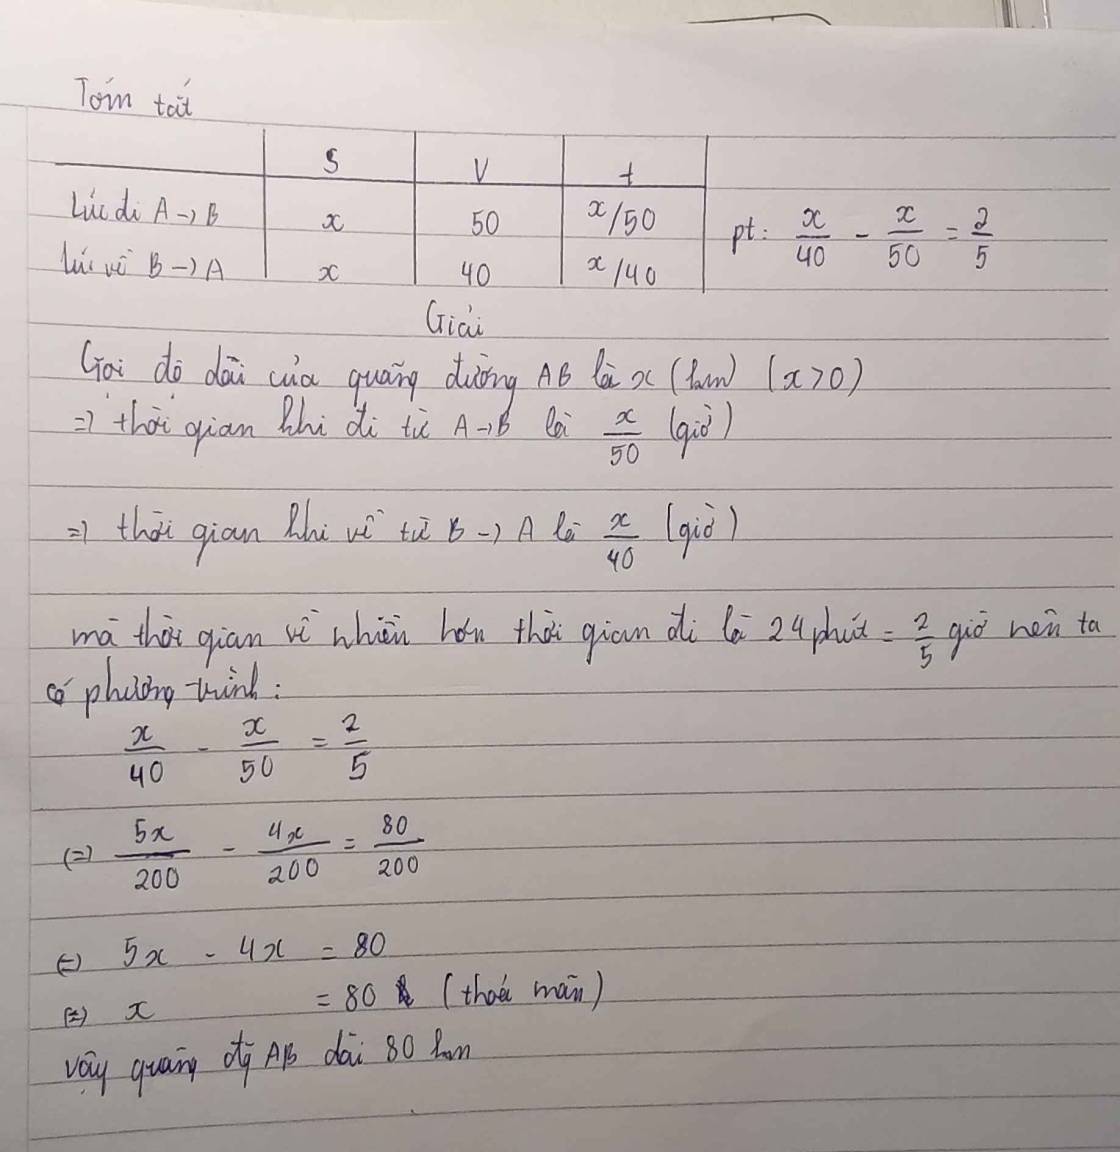 Tóm tắt
S V t
Lúc đi A → B x 50 x/50
lúc về B → A x 40 x/40
pt: x/40 - x/50 = 2/5
Giải
Gọi độ dài của quãng đường AB là x (km) (x>0)
=> thời gian khi đi từ A→B là x/50 (giờ)
=> thời gian khi về từ B → A là x/40 (giờ)
mà thời gian về nhiều hơn thời gian đi là 24 phút = 2/5 giờ nên ta
có phương trình:
x/40 - x/50 = 2/5
(=) 5x/200 - 4x/200 = 80/200
(=) 5x - 4x = 80
(=) x = 80 (thoả mãn)
vậy quãng đg AB dài 80 km